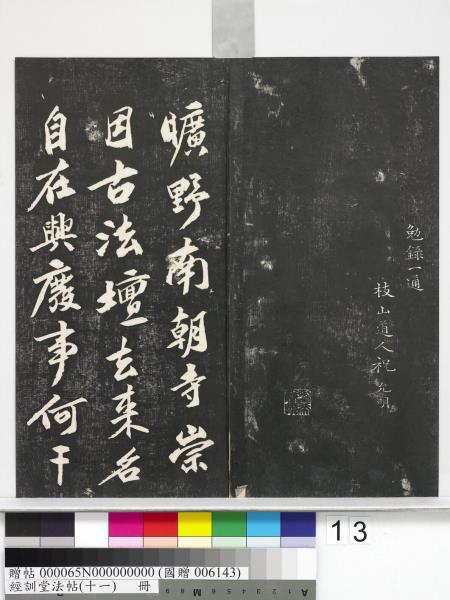 勉錄一通
枝山道人祝允明
曠野南朝寺崇
因古法壇去來名
自在興廢事何干
13
贈帖 000065N000000000 (國贈 006143)
經訓堂法帖(十一) 冊